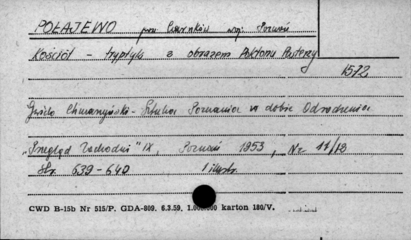 POŁAJEWO pow Czarnków woj. Poznań
Kościół – tryptyk z obrazem Pokłonu Pasterzy
1572
Gwido Chmarzyński - Sztuka Poznańska w dobie Odrodzenia
„Przegląd Zachodni" IX, Poznań 1953, Nr 11/12
Str. 639-640 1 ilustr.
CWD B-15b Nr 515/P. GDA-809. 6.3.59. karton 180/V.